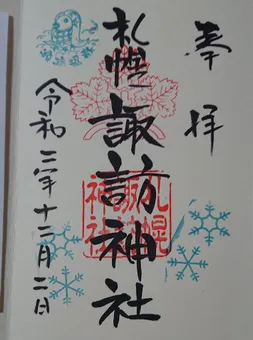 奉拝
札幌諏訪神社
令和三年十二月二日
札幌
諏訪
神社